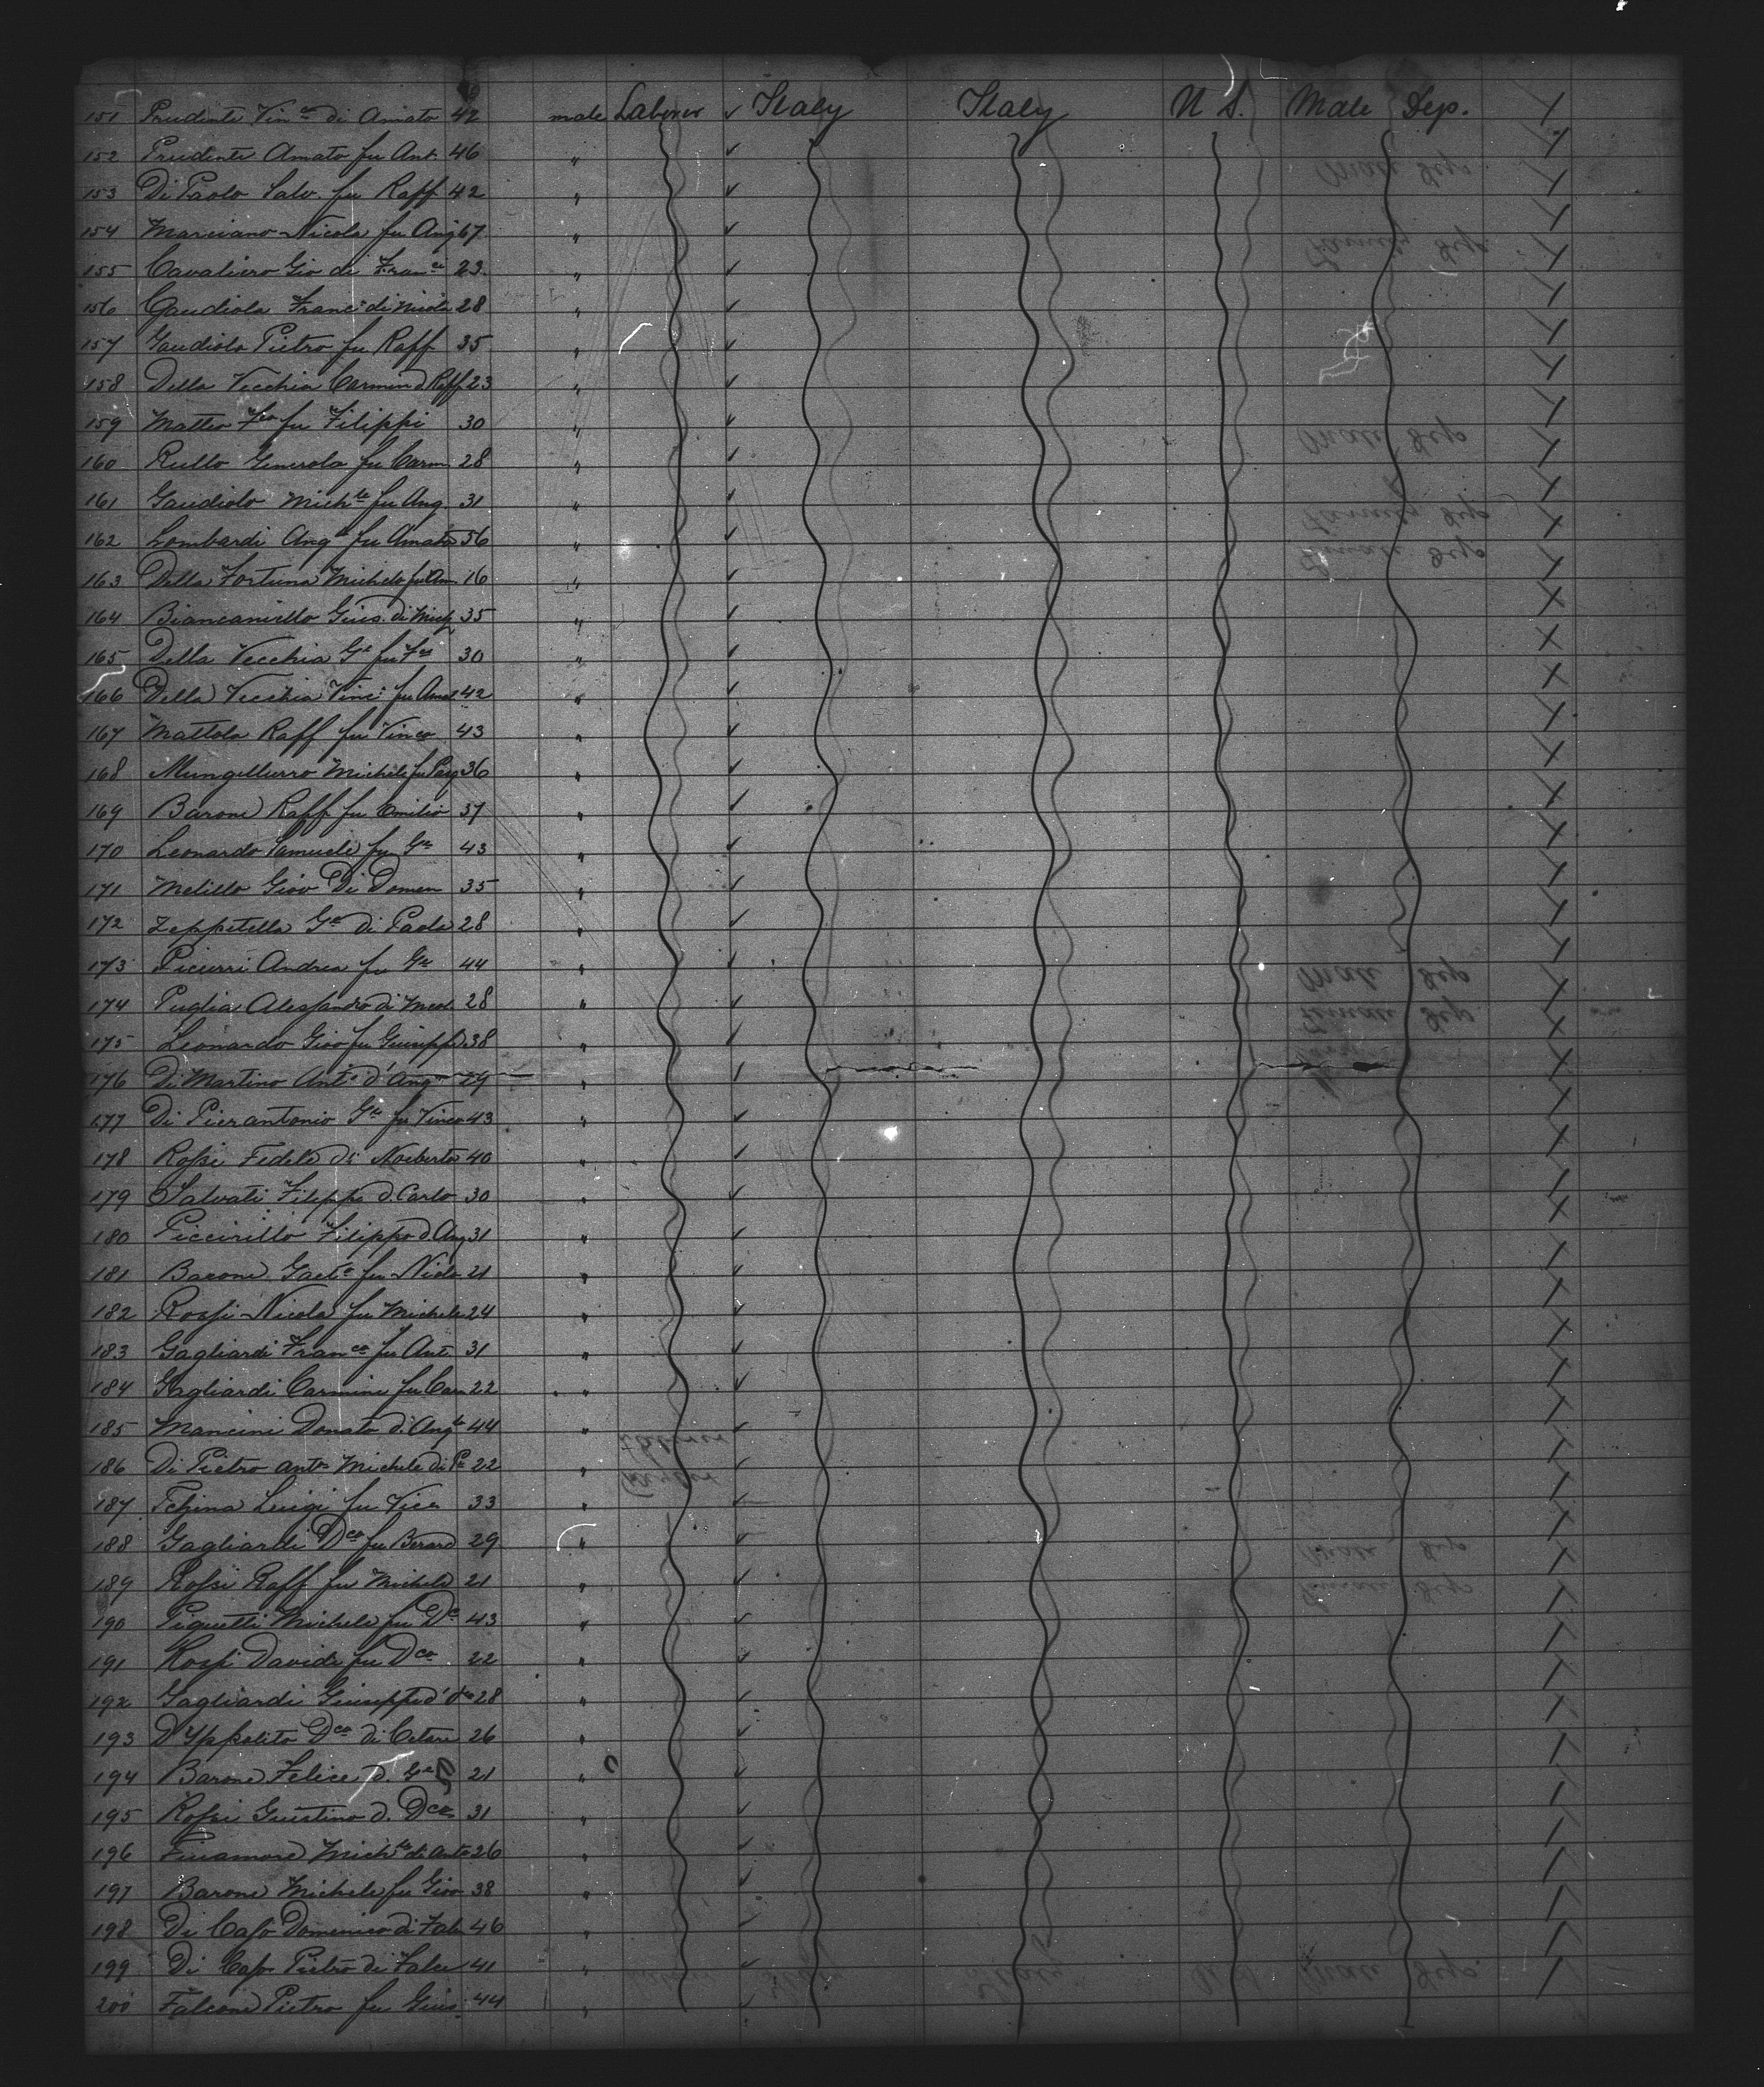 151 Prudente Vin^co di Amato 42 male Laborer ✓ Italy Italy U S. Male Dep.
152 Prudente Amato fu Ant. 46 "
153 Di Paolo Salv. fu Raff 42 "
154 Marciano Nicola fu Ang 67 "
155 Cavaliero Gio di Fran^co 23 "
156 Gaudiola Franc^o di Nicola 28 "
157 Gaudiolo Pietro fu Raff 35 "
158 Della Vecchia Carmin d. Raff 23 "
159 Matteo F^co fu Filippi 30 "
160 Rullo fu Carm. 28 "
161 Gaudiolo Mich^le fu Ang 31 "
162 Lombardi Ang^lo fu Amato 56 "
163 Della Fortuna Michele fu Am. 16 "
164 Biancaniello Gius. di Mich 35 "
165 Della Vecchia G^e fu F^co 30 "
166 Della Vecchia Vinc^o fu Amat 42 "
167 Mattola Raff fu Vinco 43 "
168 Michele fu Pasq 36 "
169 Barone Raff fu Emilio 37 "
170 Leonardo Samuele fu G^e 43 "
171 Melillo Giov Di Domen 35 "
172 Zeppetella G^e di Paolo 28 "
173 Picurri Andrea fu G^e 44 "
174 Puglia Alessandro di 28 "
175 Leonardo Gio fu Giuseppe 38 "
176 Di Martino Ant^o d'Ang^o 29 "
177 Di Pierantonio G^e fu Vinco 43 "
178 Rossi Fedele di Norberto 40 "
179 Salvati Filippo d. Carlo 30 "
180 Piccirillo Filippo d. Ang 31 "
181 Barone Gaet^o fu Nicla 21 "
182 Rossi Nicola fu Michele 24 "
183 Gagliardi Fran^co fu Ant. 31 "
184 Gagliardi Carmine fu Carm 22 "
185 Mancini Donato d. Ang^lo 44 "
186 Di Pietro Ant^o Michele di P^o 22 "
187 Luigi fu Vice 33 "
188 Gagliardi D^co fu Berard 29 "
189 Rossi Raff fu Michele 21 "
190 Piquetti Michele fu D^co 43 "
191 Rossi Davide fu D^co 22 "
192 Gagliardi Giuseppe d' D^co 28 "
193 D'Yppolito D^co di Cetare 26 "
194 Barone Felice d. G^e 21 "
195 Rossi Giustino d. D^co 31 "
196 Finamore Mich^le di Anto 26 "
197 Barone Michele fu Gio 38 "
198 Di Caso Domenico di Falu 46 "
199 Di Caso Pietro di Falu 41 "
200 Falcone Pietro fu Gius. 44 "